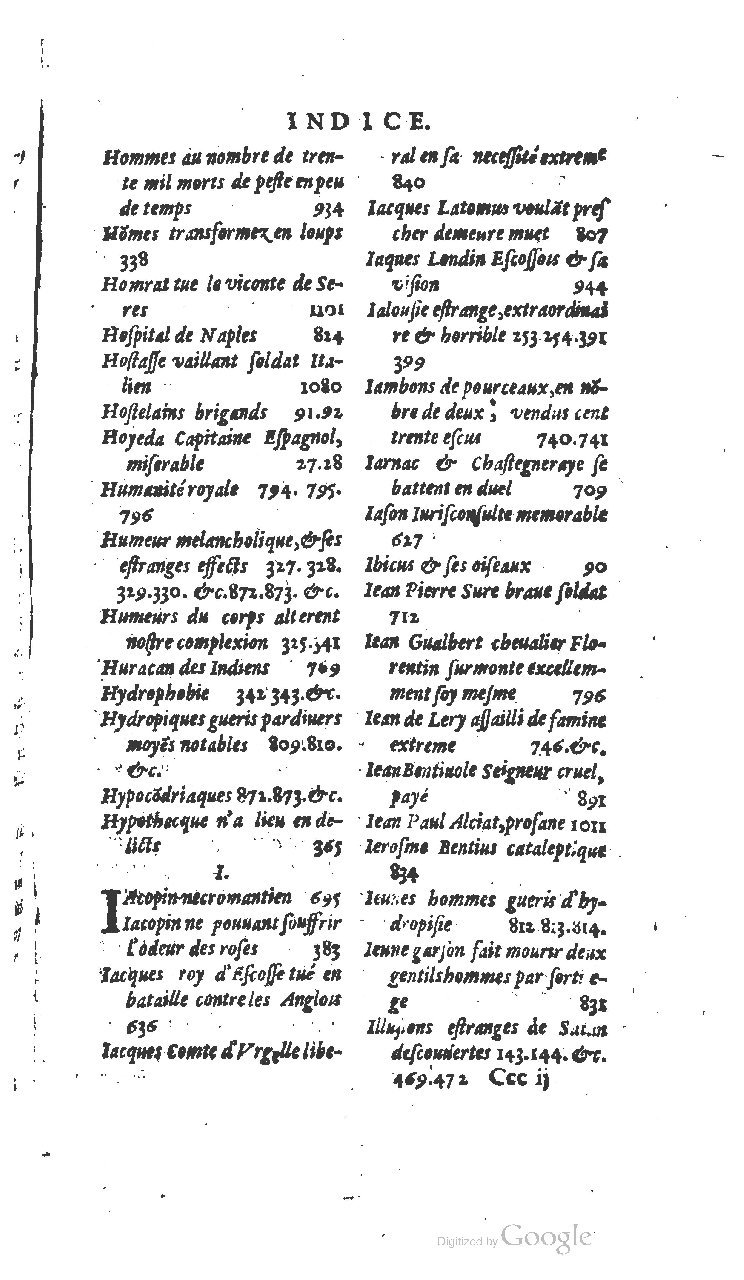 INDICE.
Hommes au nombre de tren-
te mil morts de peſte en peu
de temps 934
Hõmes transformez en loups
338
Homrat tue le viconte de Se-
res 1101
Hoſpital de Naples 824
Hoſtaſſe vaillant ſoldat Ita-
lien 1080
Hoſtelains brigands 91.92
Hoyeda Capitaine Eſpagnol,
miſerable 27.28
Humanité royale 794. 795.
796
Humeur melancholique, & ſes
eſtranges effects 327. 328.
329.330. &c. 872.873. &c.
Humeurs du corps alterent
noſtre complexion 325.341
Huracan des Indiens 769
Hydrophobie 342 343. &c.
Hydropiques gueris par diuers
moyẽs notables 809.810.
&c.
Hypocõdriaques 872.873. &c.
Hypothecque n'a lieu en de-
licts 365
I.
IAcopin necromantien 695
Iacopin ne pouuant ſouffrir
l'odeur des roſes 383
Iacques roy d'Eſcoſſe tué en
bataille contre les Anglois
636
Iacques Comte d'Vrgelle libe-
ral en ſa neceſſité extreme
840
Iacques Latomus voulãt preſ
cher demeure muet 807
Iaques Londin Eſcoſſois & ſa
viſion 944
Ialouſie eſtrange, extraordinai
re & horrible 253.254.391
399
Iambons de pourceaux, en nõ-
bre de deux; vendus cent
trente eſcus 740.741
Iarnac & Chaſtegneraye ſe
battent en duel 709
Iaſon Iuriſconſulte memorable
627
Ibicus & ſes oiſeaux 90
Iean Pierre Sure braue ſoldat
712
Iean Gualbert cheualier Flo-
rentin ſurmonte excellem-
ment ſoy meſme 796
Iean de Lery aſſailli de famine
extreme 746. &c.
Iean Bentiuole Seigneur cruel,
payé 891
Iean Paul Alciat, profane 1011
Ieroſme Bentius cataleptique
834
Ieunes hommes gueris d'hy-
dropiſie 812.813.814.
Ieune garſon fait mourir deux
gentilshommes par ſortile-
ge 831
Illuſions eſtranges de Satan
deſcouuertes 143.144. &c.
469.472 Ccc ij
Digitized by Google